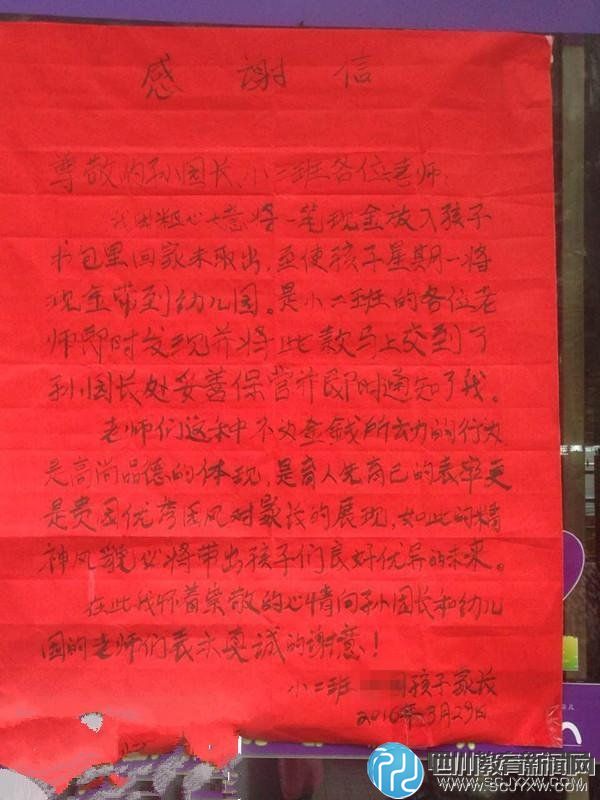 感谢信
尊敬的孙园长、小二班各位老师：
我因粗心大意将一笔现金放入孩子
书包里回家未取出，至使孩子星期一将
现金带到幼儿园。是小二班的各位老
师即时发现并将此款马上交到了
孙园长处妥善保管并即时通知了我。
老师们这种不为金钱所动的行为
是高尚品德的体现，是育人先育己的表率更
是贵园优秀园风对家长的展现，如此的精
神风貌必将带出孩子们良好优异的未来。
在此我怀着崇敬的心情向孙园长和幼儿
园的老师们表示真诚的谢意！
小二班 孩子家长
2016年3月29日
四川教育新闻网
WWW.SCJYXW.COM